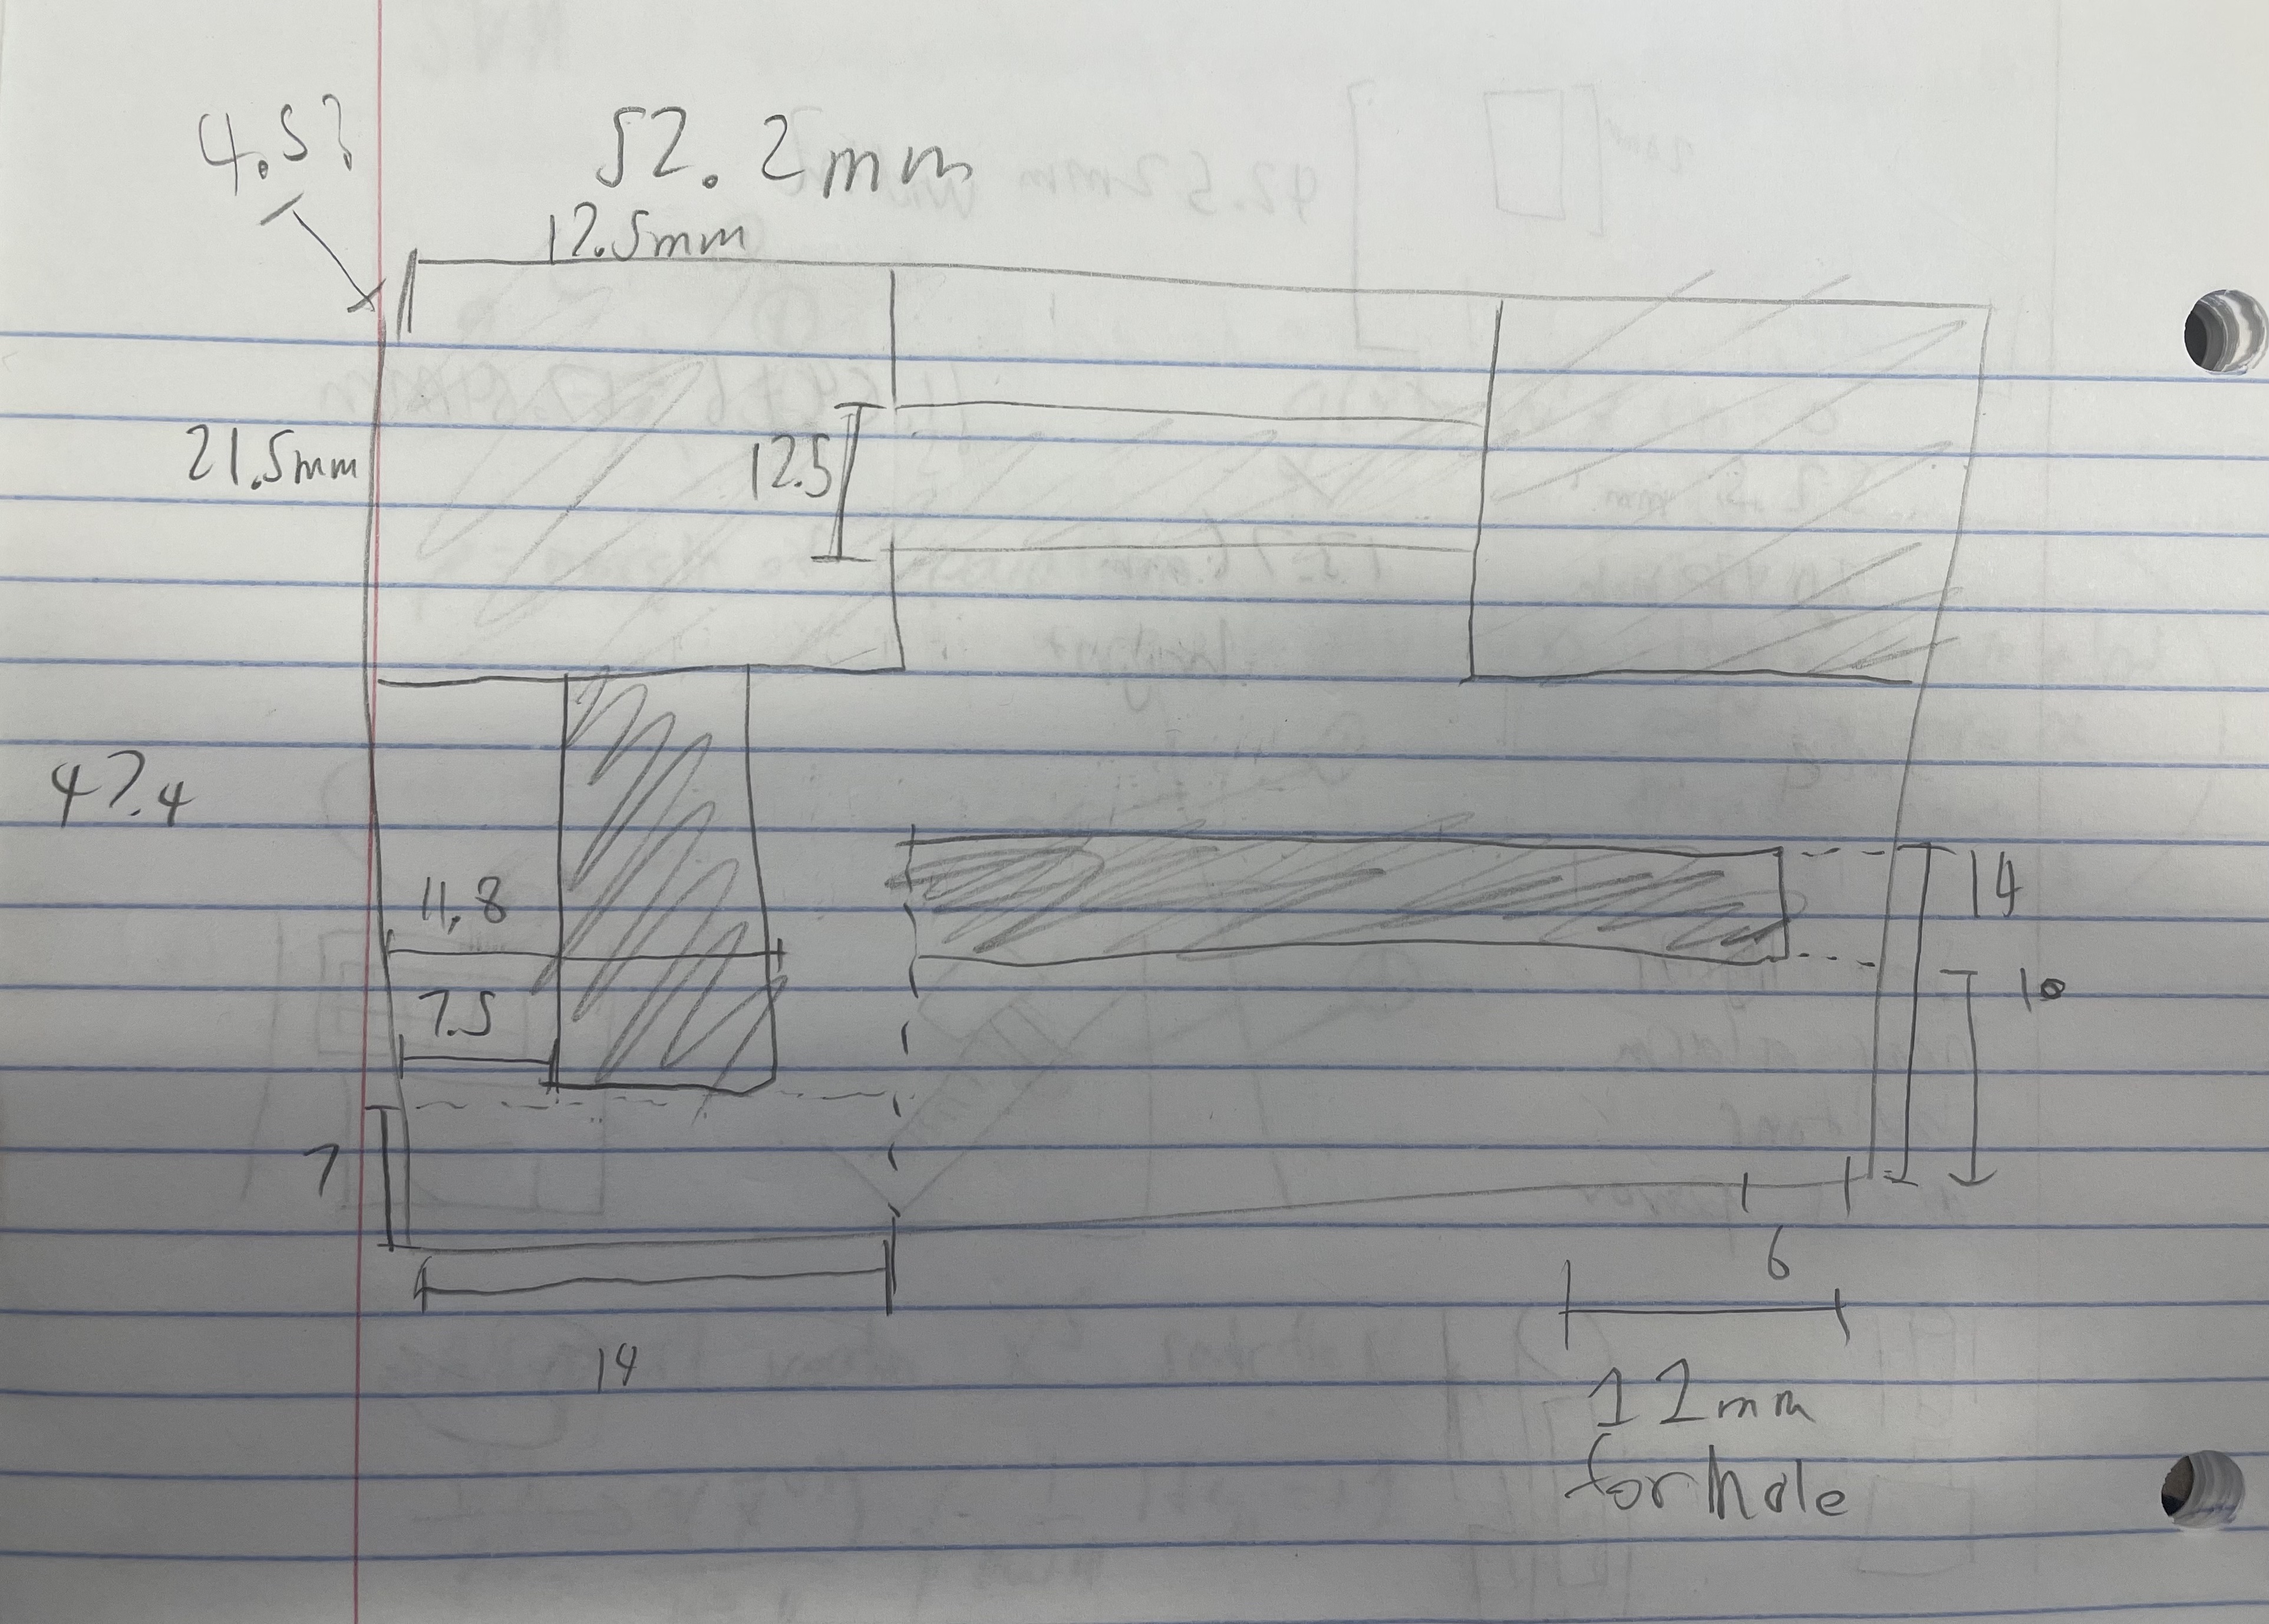 4.5?
52.2mm
12.5mm
21.5mm
12.5
47.4
11.8
14
7.5
10
7
6
14
12mm
for hole